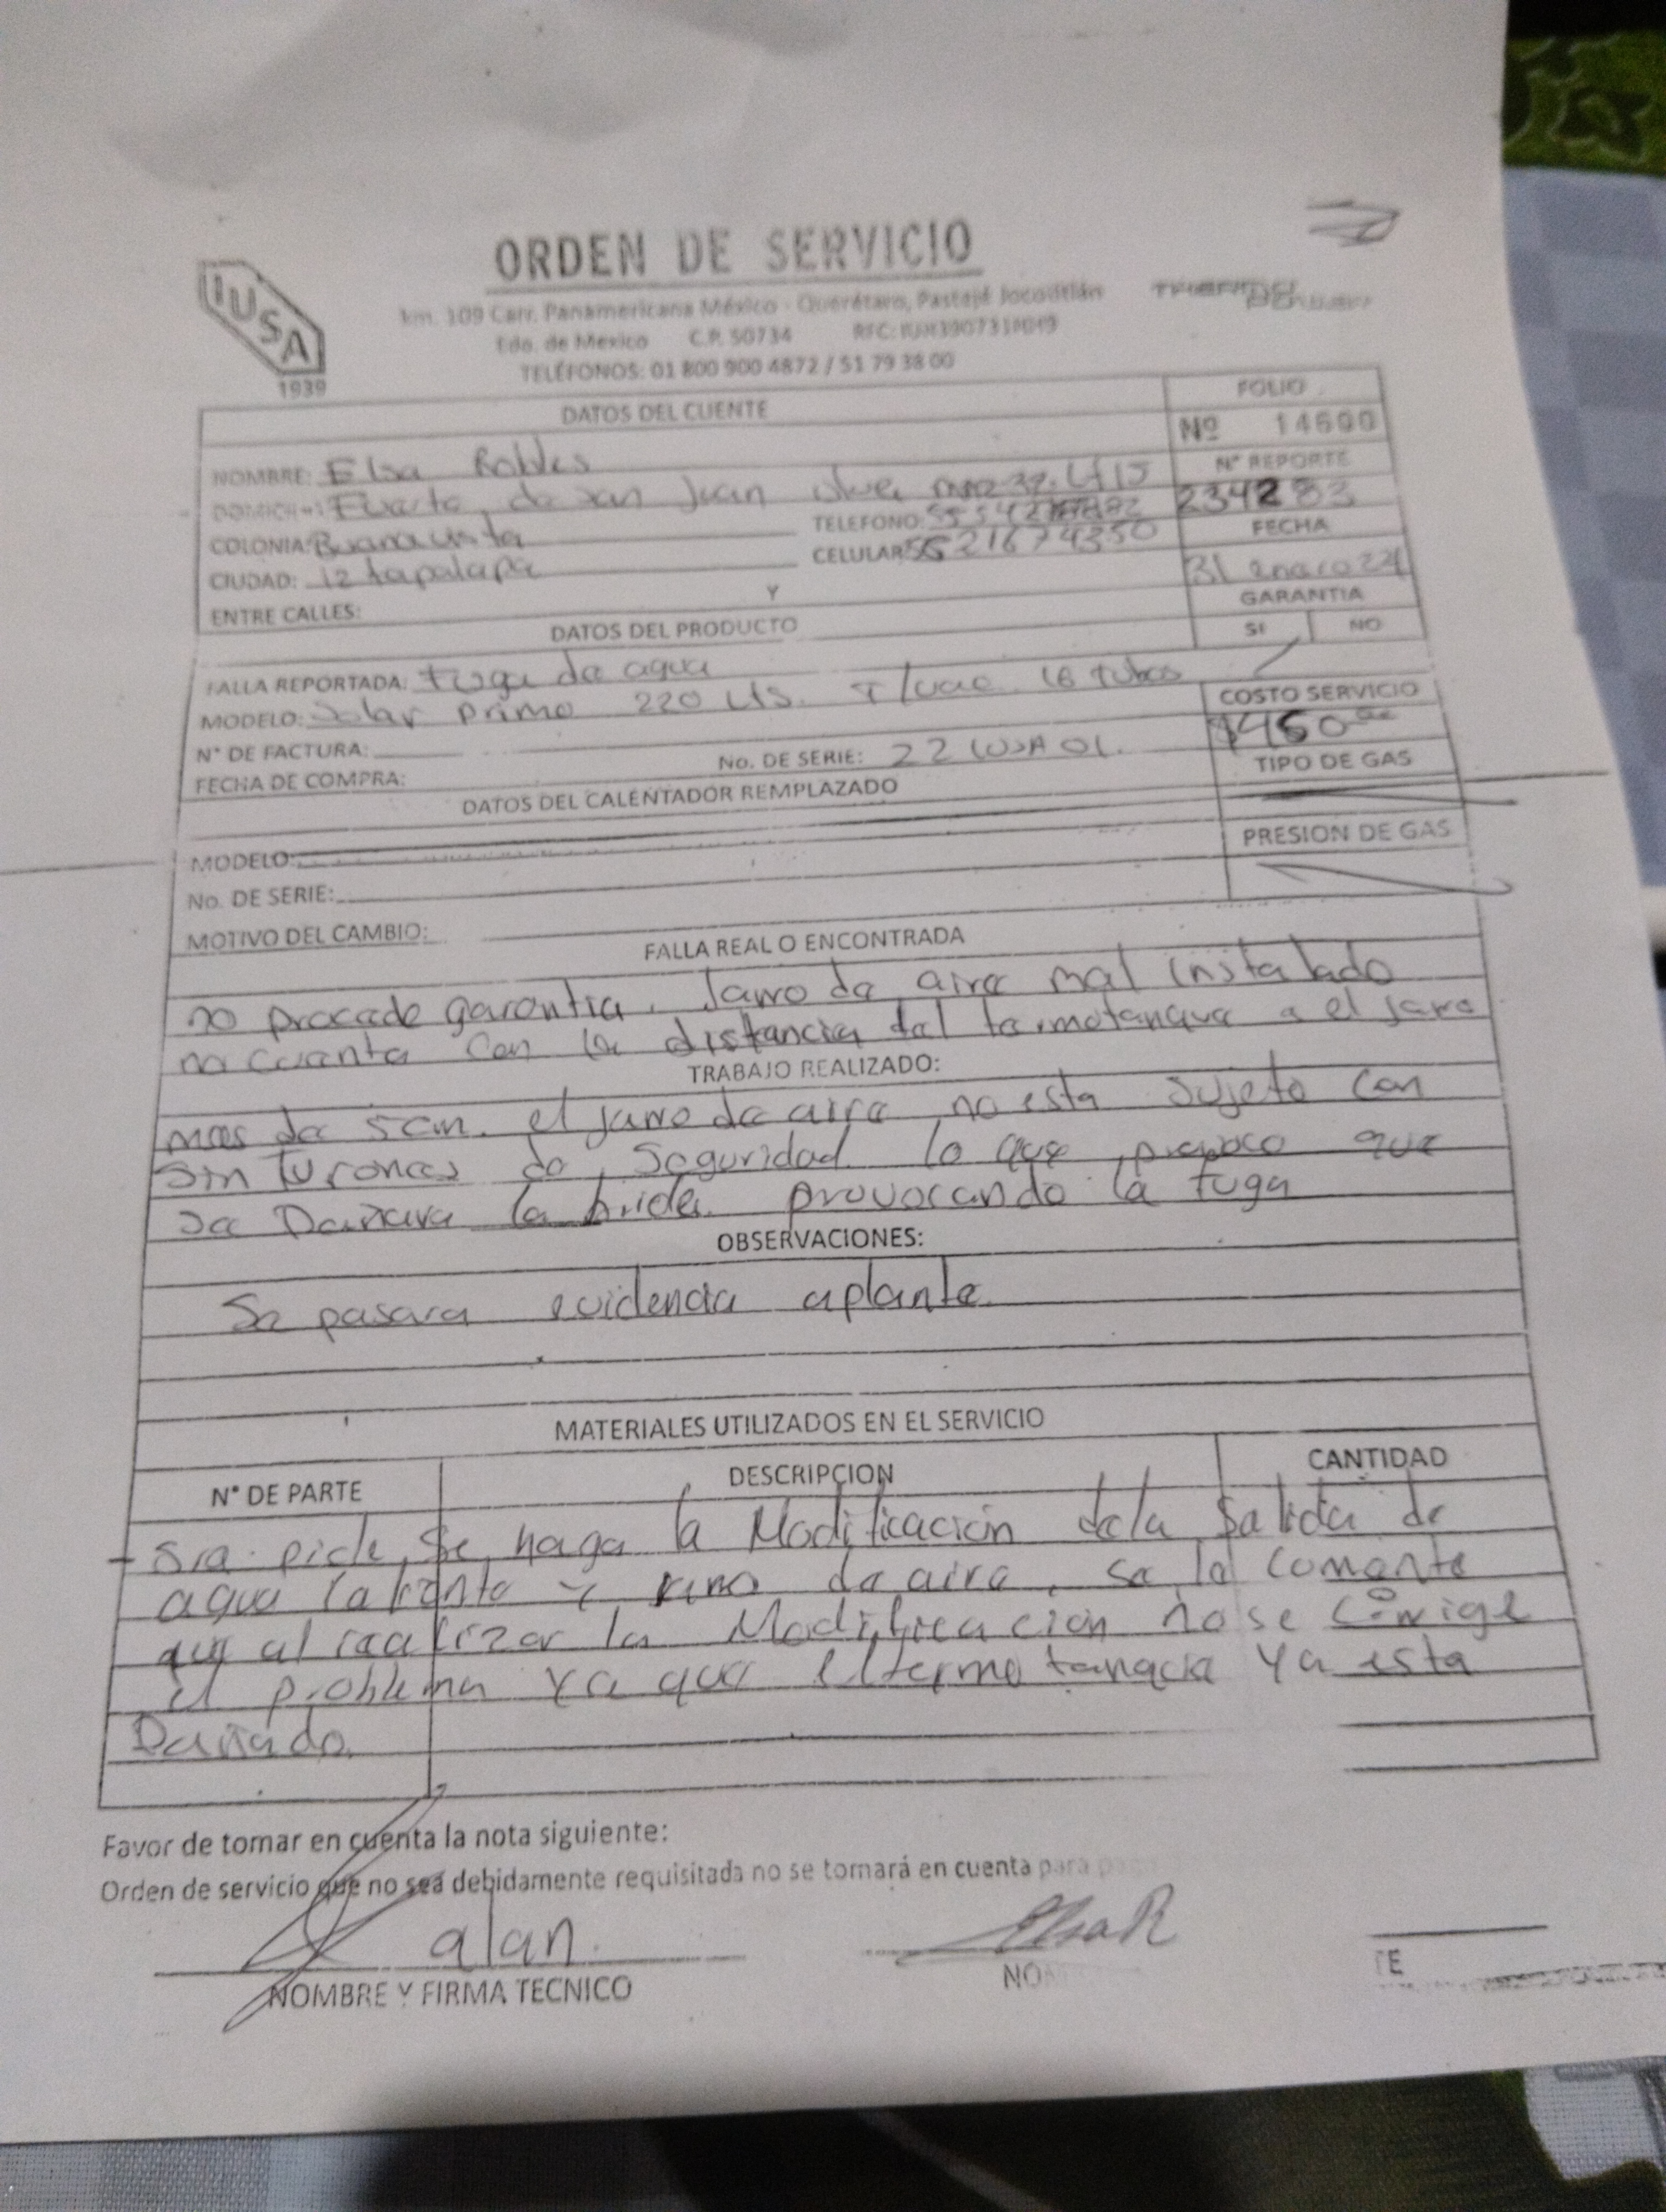 ORDEN DE SERVICIO
IUSA
1939
km. 109 Carr. Panamericana México - Querétaro, Pastejé Jocotitlán
Edo. de Mexico C.P. 50734 RFC:
TELÉFONOS: 01 800 900 4872 / 51 79 38 00
DATOS DEL CLIENTE
FOLIO
Nº 14600
NOMBRE: Elsa Robles
N° REPORTE
234283
DOMICILIO: Fuerte de san Juan mnz 32. Lt 15
COLONIA: Buanavista
TELEFONO:
CIUDAD: iztapalapa
CELULAR: 5521674350
FECHA
31 enero 24
ENTRE CALLES: Y
GARANTIA
SI NO
DATOS DEL PRODUCTO
FALLA REPORTADA: Fuga de agua
MODELO: Solar Prime 220 Lts. T/vac. 16 Tubos
COSTO SERVICIO
$450.00
N° DE FACTURA:
No. DE SERIE:
FECHA DE COMPRA:
TIPO DE GAS
DATOS DEL CALENTADOR REMPLAZADO
MODELO:
PRESION DE GAS
No. DE SERIE:
MOTIVO DEL CAMBIO:
FALLA REAL O ENCONTRADA
no procade garantia. Jarro de aire mal instalado
no cuanta con la distancia del termotanque a el jarro
TRABAJO REALIZADO:
mas de 5cm. el jarro de aire no esta sujeto con
sinturones de seguridad lo que provoco que
se Dañara la brida. provocando la fuga
OBSERVACIONES:
Se pasara evidencia aplante.
MATERIALES UTILIZADOS EN EL SERVICIO
N° DE PARTE DESCRIPCION CANTIDAD
- Sra. pide, se haga la Modificación dela salida de
agua caliente y jarro de aire, se le comenta
que al realizar la Modificacion no se corrige
el problema ya que el termotanque ya esta
Dañado.
Favor de tomar en cuenta la nota siguiente:
Orden de servicio que no sea debidamente requisitada no se tomará en cuenta para
alan. ElsaR
NOMBRE Y FIRMA TECNICO NO TE